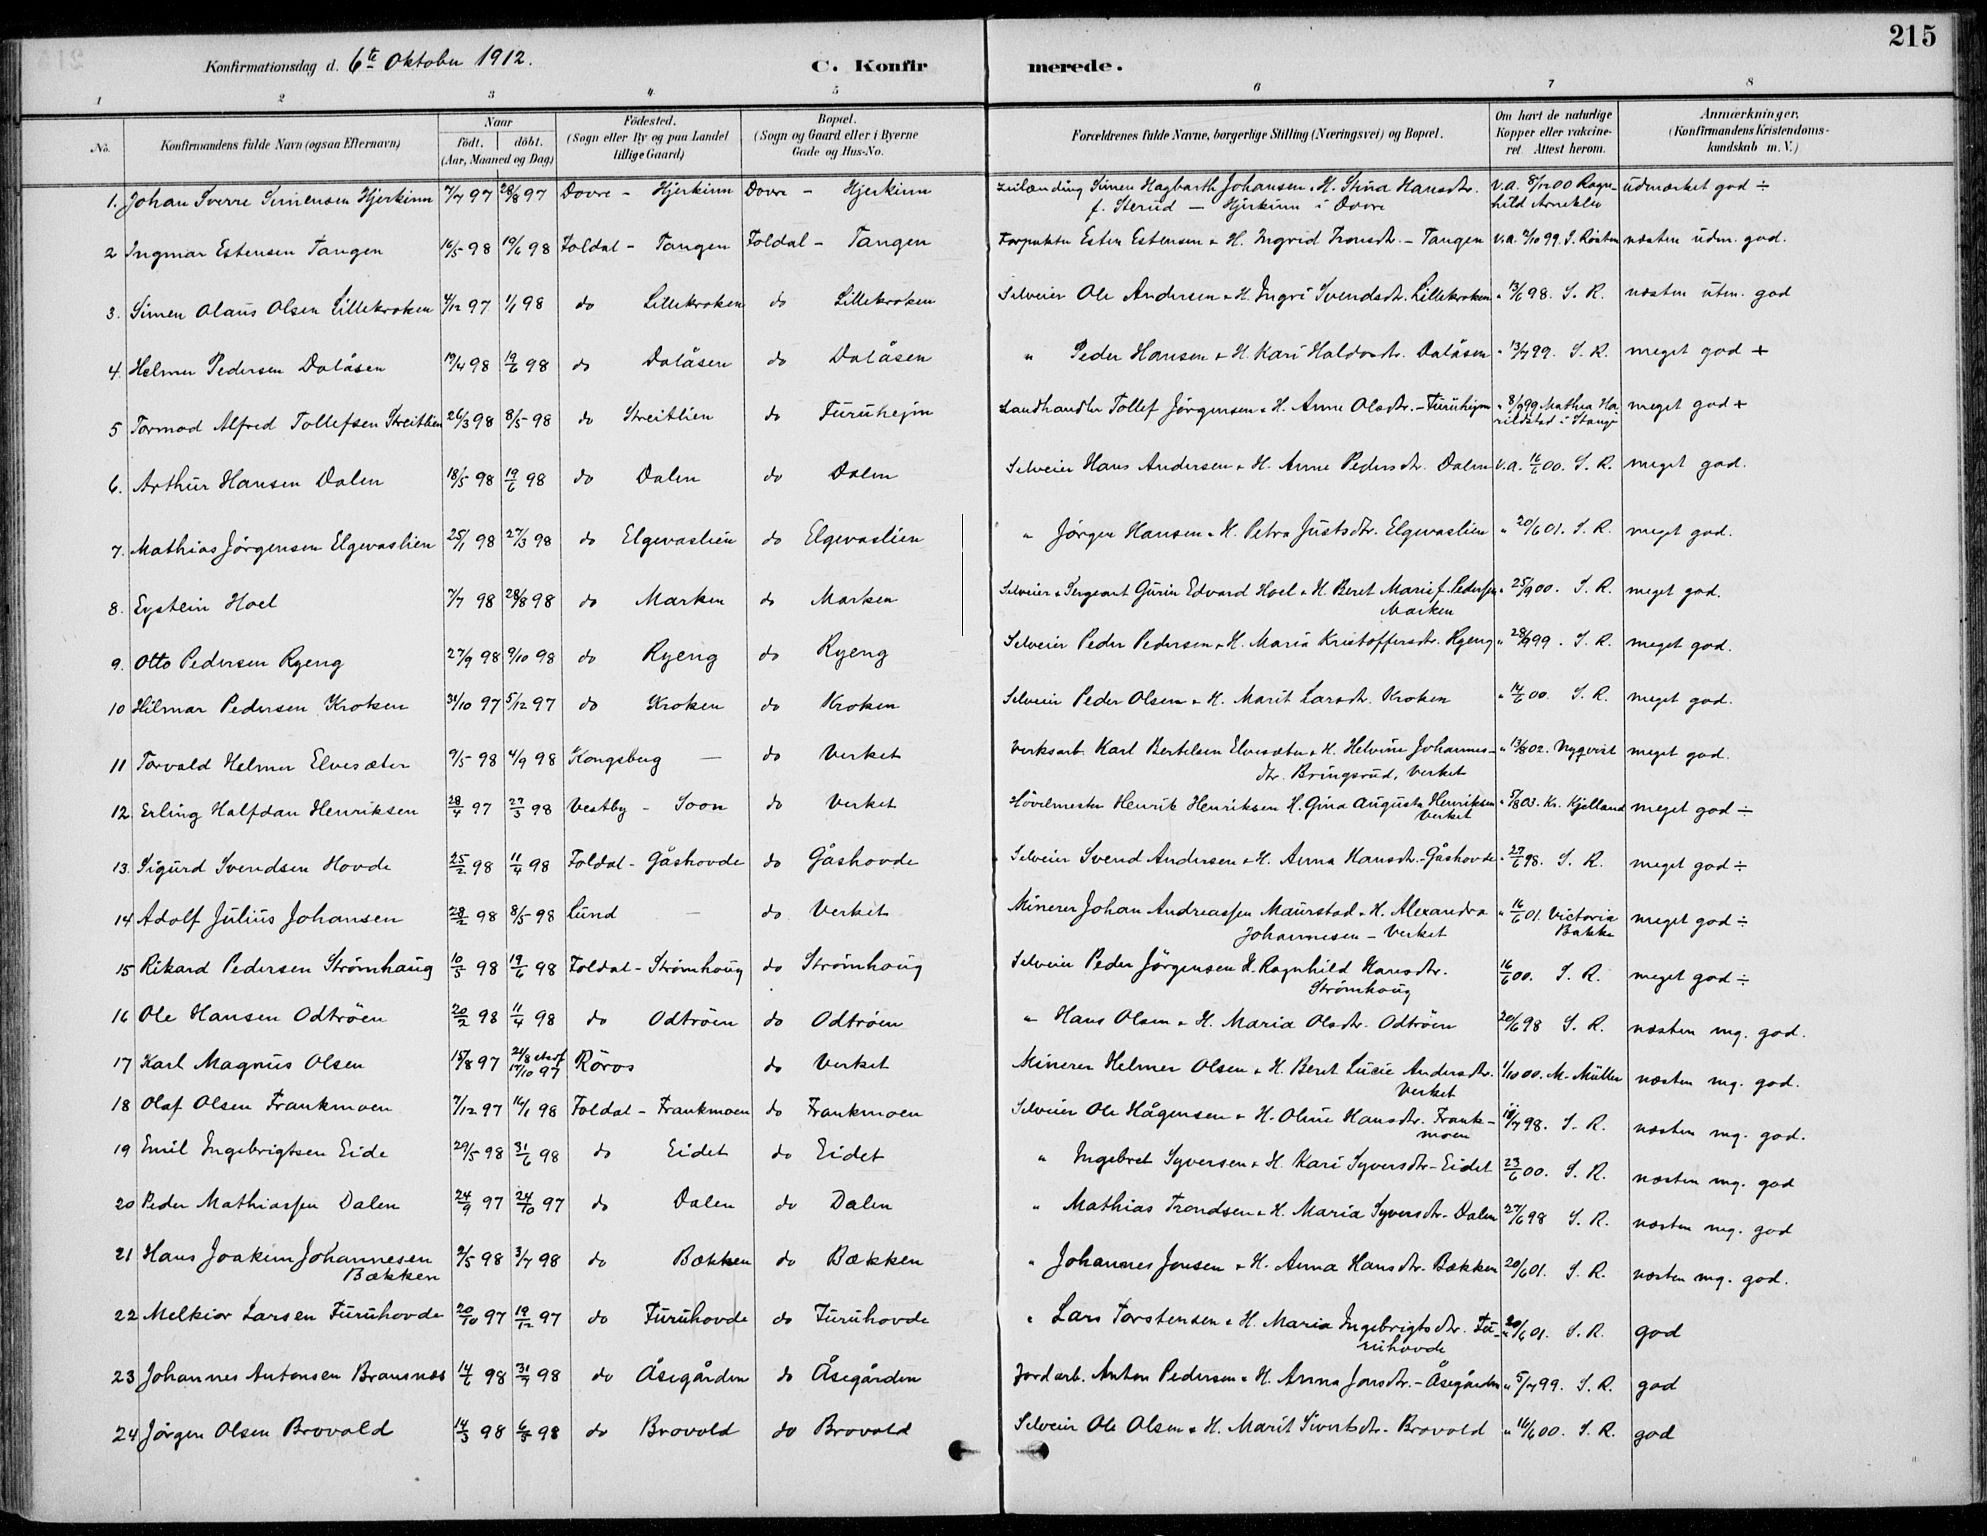 215
Konfirmationsdag d. 6te Oktober 1912. C. Konfirmerede.
1 2 3 4 5 6 7 8
No. Konfirmandens fulde Navn (ogsaa Efternavn) Naar født. døbt. (Aar, Maaned og Dag) Fødested. (Sogn eller By og paa Landet tillige Gaard) Bopæl. (Sogn og Gaard eller i Byerne Gade og Hus-No. Forældrenes fulde Navne, borgerlige Stilling (Næringsvei) og Bopæl. Om havt de naturlige Kopper eller vakcineret. Attest herom. Anmærkninger. (Konfirmandens Kristendomskundskab m. V.)
1. Johan Sverre Simensen Hjerkinn 7/7 97 28/8 97 Dovre - Hjerkinn Dovre - Hjerkinn Simen Hagbarth Johansen, H. Stina Hansdtr. v.a. 8/12 00 Ragn- udmærket god ÷
f. Sterud — Hjerkinn i Dovre hild Arneklev
2 Ingmar Estensen Tangen 16/5 98 19/6 98 Foldal - Tangen Foldal - Tangen Forpakter Esten Estensen & H. Ingrid Tronsdtr. - Tangen v.a. 2/10 99. S. Rosten næsten udm. god.
3. Simen Olaus Olsen Lillekroken 4/12 97 1/1 98 do Lillekroken do Lillekroken Selveier Ole Andersen & H. Ingri Svendsdtr. Lillekroken " 13/6 98. S. R. næsten utm. god
4. Helmer Pedersen Dalåsen 19/4 98 19/6 98 do Dalåsen do Dalåsen " Peder Hansen & H. Kari Haldordtr. Dalåsen " 13/7 99. S. R. meget god +
5 Tormod Alfred Tollefsen Streitlien 26/3 98 8/5 98 do Streitlien do Furuhejm Landhandler Tollef Jørgensen & H. Anne Olsdtr. - Furuhejm " 8/9 99 Mathea Ha- meget god +
rildstad i Stange
6. Arthur Hansen Dalen 18/5 98 19/6 98 do Dalen do Dalen Selveier Hans Andersen & H. Anne Pedersdtr. Dalen v.a. 16/6 00. S. R. meget god.
7. Mathias Jörgensen Elgevaslien 25/1 98 27/3 98 do Elgevaslien do Elgevaslien " Jørgen Hansen & H. Petra Justsdtr. Elgevaslien " 20/6 01. S. R. meget god.
8. Eystein Hoel 7/7 98 28/8 98 do Marken do Marken Selveier & Sergeant Gurin Edvard Hoel & H. Beret Marie f. Pedersen " 25/9 00. S. R. meget god.
Marken
9. Otto Pedersen Ryeng 27/9 98 9/10 98 do Ryeng do Ryeng Selveier Peder Pedersen & H. Maria Kristoffersdtr. Ryeng " 28/9 99. S. R. meget god.
10 Hilmar Pedersen Kroken 31/10 97 5/12 97 do Kroken do Kroken Selveier Peder Olsen & H. Marit Larsdtr. Kroken " 14/6 00. S. R. meget god.
11 Torvald Helmer Elvesæter 9/5 98 4/9 98 Kongsberg — do Verket Verksarb. Karl Bertelsen Elvesæter & H. Helvine Johannes- " 13/8 02. Nyqvist meget god.
dtr. Bringsrud, Verket
12. Erling Halfdan Henriksen 28/4 97 27/3 98 Vestby - Soon do Verket Hövelmester Henrik Henriksen H. Gina Augusta Henriksen " 5/8 03. Kr. Kjelland meget god ÷
Verket
13. Sigurd Svendsen Hovde 25/2 98 11/4 98 Foldal - Gåshovde do Gåshovde Selveier Svend Andersen & H. Anna Hansdtr. - Gåshovde " 27/6 98. S. R. meget god ÷
14 Adolf Julius Johansen 28/2 98 8/5 98 Lund — do Verket Minerer Johan Andreassen Maurstad & H. Alexandra " 16/6 01. Victoria meget god ÷
Johannesen - Verket Bakke
15 Rikard Pedersen Strømhaug 10/5 98 19/6 98 Foldal - Strømhoug do Strømhoug Selveier Peder Jörgensen H. Ragnhild Hansdtr. 16/6 00. S. R. meget god ÷
Strømhoug
16 Ole Hansen Odtröen 20/2 98 11/4 98 do Odtröen do Odtröen " Hans Olsen & H. Maria Olsdtr. Odtröen 20/6 98 S. R. næsten mg. god.
17 Karl Magnus Olsen 15/8 97 21/8 stadf 17/10 97 Röros do Verket Minerer Helmer Olsen & H. Beret Lucie Andersdtr. 1/10 00. M. Müller næsten mg. god.
Verket
18 Olaf Olsen Frankmoen 7/12 97 16/1 98 Foldal - Frankmoen do Frankmoen Selveier Ole Hågensen & H. Oline Hansdtr. Frank- 18/7 98. S. R. næsten mg. god.
moen
19 Emil Ingebrigtsen Eide 29/5 98 31/6 98 do Eidet do Eidet " Ingebret Syversen & H. Kari Syversdtr - Eidet 23/6 00. S. R. næsten mg. god
20 Peder Mathiassen Dalen 24/9 97 24/10 97 do Dalen do Dalen " Mathias Trondsen & H. Maria Syversdtr - Dalen 27/6 98 S. R. næsten mg. god
21 Hans Joakim Johannesen 2/5 98 3/7 98 do Bækken do Bækken " Johannes Jonsen & H. Anna Hansdtr. Bækken 20/6 01. S. R. næsten mg. god.
Bækken
22 Melkior Larsen Furuhovde 20/10 97 19/12 97 do Furuhovde do Furuhovde " Lars Torstensen & H. Maria Ingebrigtsdtr. Fu- " 20/6 01. S. R. god
ruhovde
23 Johannes Antonsen Bransnæs 14/6 98 31/7 98 do Åsegården do Åsegården Jordarb. Anton Pedersen & H. Anna Jonsdtr. - Åsegården " 5/7 99. S. R. god
24 Jörgen Olsen Brovold 14/3 98 6/5 98 do Brovold do Brovold Selveier Ole Olsen & H. Marit Sivertsdtr. Brovold " 16/6 00. S. R. god